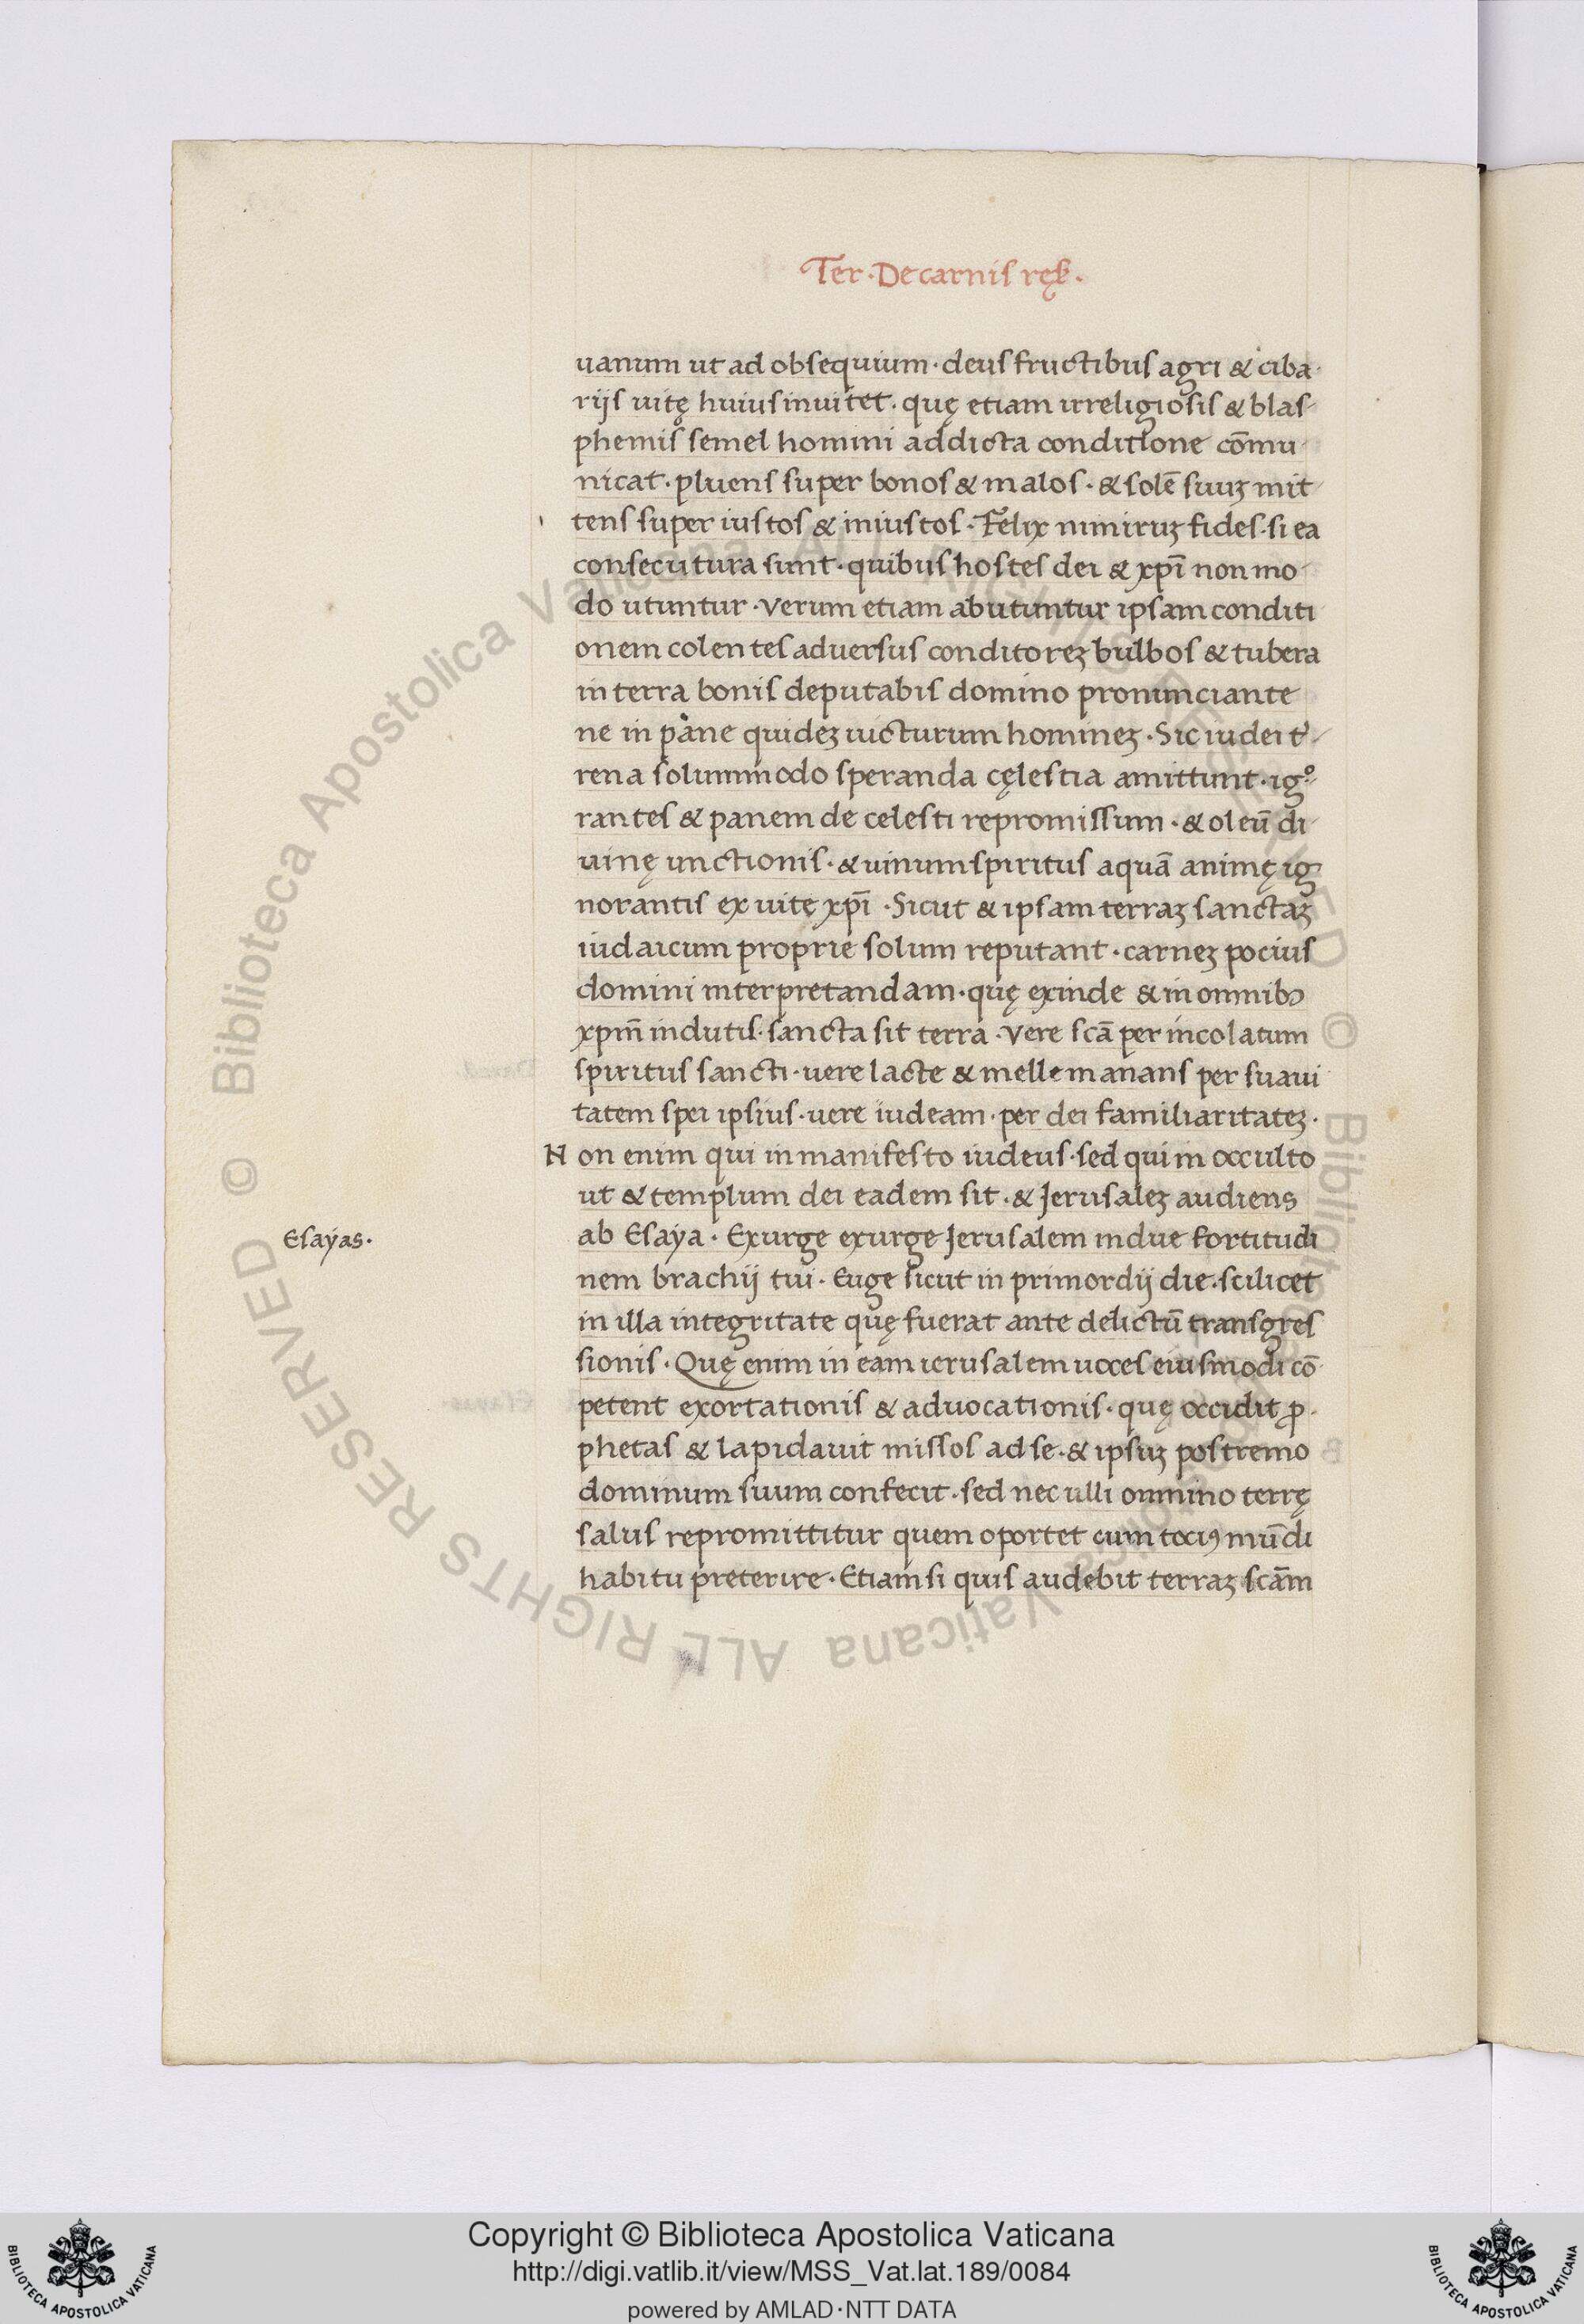 Ter · De carnis ręs͛ ·
uanum ut ad obsequium · deus fructibus agri & ciba
rijs uitę huius inuitet · quę etiam irreligiosis & blas
phemis semel homini addicta conditione cōmu
nicat · pluens super bonos & malos · & solē suuʒ mit
tens super iustos & iniustos · Felix nimiruʒ fides · si ea
consecutura sunt · quibus hostes dei & xp̄i non mo
do utuntur · verum etiam abutuntur ipsam conditi
onem colentes aduersus conditoreʒ bulbos & tubera
in terra bonis deputabis domino pronunciante
ne in pane quideʒ uicturum homineʒ · Sic iudei t᷑
rena solummodo speranda cęlestia amittunt · igº
rantes & panem de celesti repromissum · & oleū di
uinę unctionis · & uinum spiritus aquā animę ig
norantis ex uite xp̄i · Sicut & ipsam terraʒ sanctaʒ
iudaicum proprie solum reputant · carneʒ pocius
domini interpretandam · quę exinde & in omnibꝰ
xpm̄ indutis · sancta sit terra · vere scā per incolatum
spiritus sancti · uere lacte & melle manans per suaui
tatem spei ipsius · uere iudeam · per dei familiaritateʒ ·
Non enim qui in manifesto iudeus · sed qui in occulto
ut & templum dei eadem sit · & Jerusaleʒ audiens
Esayas ·
ab Esaya · Exurge exurge Jerusalem indue fortitudi
nem brachij tui · Euge sicut in primordij die · scilicet
in illa integritate quę fuerat ante delictū transgres
sionis · Quę enim in eam ierusalem uoces eiusmodi cō
petent exortationis & aduocationis · quę occidit ꝓ
phetas & lapidauit missos ad se · & ipsuʒ postremo
dominum suum confecit · sed nec ulli omnino terrę
salus repromittitur quem oportet cum tociꝰ mūdi
habitu preterire · Etiam si quis audebit terraʒ scām
© Biblioteca Apostolica Vaticana ALL RIGHTS RESERVED © Biblioteca Apostolica Vaticana ALL RIGHTS RESERVED
Copyright © Biblioteca Apostolica Vaticana
http://digi.vatlib.it/view/MSS_Vat.lat.189/0084
powered by AMLAD·NTT DATA
BIBLIOTECA APOSTOLICA VATICANA
BIBLIOTECA APOSTOLICA VATICANA